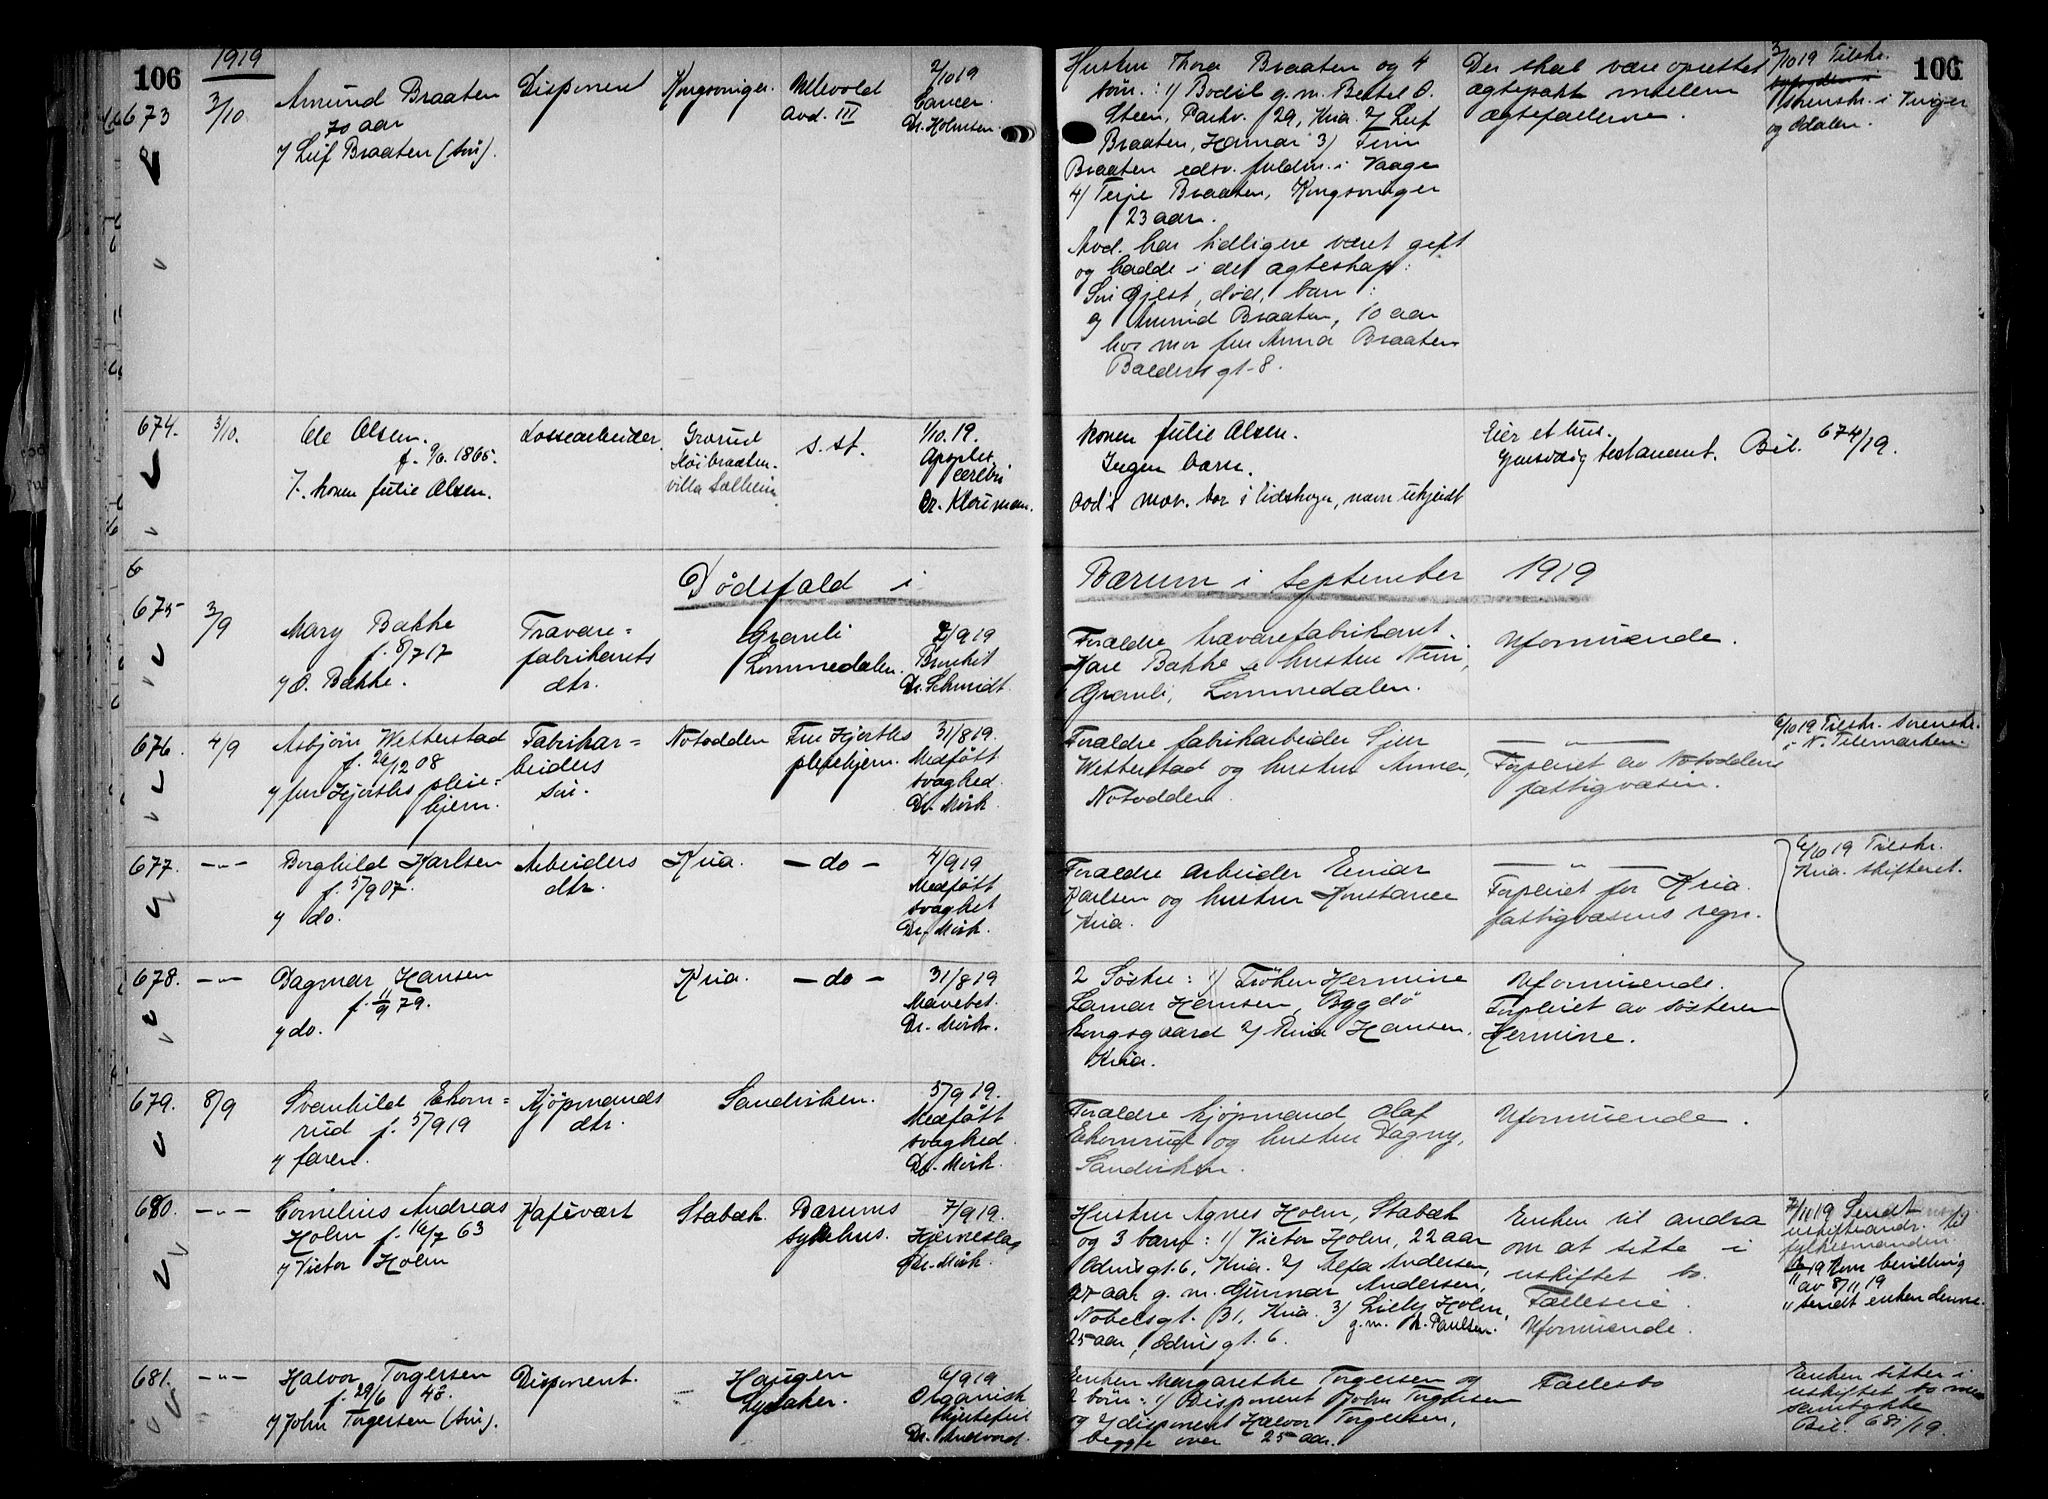 106
1919
673
3/10
Amund Braaten
70 aar
v/ Leif Braaten (søn).
Disponent
Kongsvinger.
Ullevold
avd. III
2/10 19
Cancer.
Dr. Holmsen.
Hustru Thora Braaten og 4
børn: 1) Bodil g. m. Bertel O.
Steen, Parkv. 29, Kria. 2) Leif
Braaten, Hamar 3) Finn
Braaten edsv. fuldm. i Vaage
4) Terje Braaten, Kongsvinger
23 aar.
Avd. har tidligere været gift
og hadde i det ægteskap:
Søn Gjest, død, barn:
Amund Braaten, 10 aar
hos mor fru Anna Braaten
Baldersgt. 8.
Der skal være oprettet
ægtepakt mellem
ægtefællerne.
3/10 19 Tilskr.
sorenskr. i Vinger
og Odalen.
106
674.
3/10.
Ole Olsen.
f. 9/6. 1865.
v. konen Julie Olsen.
Lossearbeider
Grorud
Høibraaten.
villa Solheim
s. st.
1/10. 19.
Apoplex.
cerebri
Dr. Klouman.
konen Julie Olsen.
Ingen barn.
avd's mor. bor i Eidskogen, navn ukjendt
Eier et hus.
Gjensidig testament. Bil. 674/19.
6
Dødsfald i Bærum i september 1919
675
3/9
Mary Bakke
f. 8/7 17
v/ O. Bakke.
Trævare=
fabrikants
dtr.
Granli
Lommedalen.
2/9 19
Bronkit
Dr. Schmidt.
Forældre trævarefabrikant
Kare Bakke og hustru
Granli, Lommedalen.
Uformuende.
676.
4/9
Asbjørn Wetterstad
f. 26/12 08
v/ fru Hjorths pleie=
hjem.
Fabrikar=
beiders
søn.
Notodden
Fru Hjorths
pleiehjem.
31/8 19.
Medfødt
svaghed.
Dr. Mørk.
Forældre fabrikarbeider Sjur
Wetterstad og hustru Anna,
Notodden.
— " —
Forpleiet av Notoddens
fattigvæsen.
6/10 19 Tilskr. sorenskr.
i N. Telemarken.
677.
— " —
Borghild Karlsen
f. 5/9 07.
v/ do.
Arbeiders
dtr.
Kria.
— do —
4/9 19
Medfødt
svaghet
Dr. Mørk.
Forældre arbeider Einar
Karlsen og hustru Konstance
Kria.
— " —
Forpleiet for Kria.
fattigvæsens regn.
6/10 19 Tilskr.
Kria. skifteret.
678.
— " —
Dagmar Hansen
f. 11/9 79.
v/ do.
Kria.
— do —
31/8 19
Mavebet.
Dr. Mørk.
2 Søstre: 1) Frøken Hermine
Hansen, Bygdø
kongsgaard 2) Hansen,
Kria.
Uformuende.
Forpleiet av søsteren
Hermine.
679.
8/9
Svanhild Ekorn=
rud f. 5/9 19
v/ faren.
Kjøpmands
dtr.
Sandviken.
5/9 19.
Medfødt
svaghed.
Dr. Mørk.
Forældre kjøpmand Olaf
Ekornrud og hustru Dagny,
Sandviken.
Uformuende.
680.
— " —
Cornelius Andreas
Holm f. 16/7 63
v/ Victor Holm
Kafévært
Stabæk.
Bærums
sykehus.
7/9 19.
Hjerneslag
Dr. Mørk.
Hustru Agnes Holm, Stabæk
og 3 barn: 1) Victor Holm, 22 aar
Odinsgt. 6, Kria. 2) Alfa Andersen,
27 aar g. m. Gunnar Andersen,
Nobelsgt. 31, Kria. 3) Lilly Holm
g. m. Paulsen.
25 aar, Odinsgt. 6.
Enken vil andra
om at sitte i
uskiftet bo.
Fælleseie.
Uformuende.
7/11 19 Sendt
uskifteandr. til
fylkesmanden.
19 Kom bevilling
av 8/11 19
" sendt enken denne.
681.
— " —
Halvor Torgersen
f. 29/6 48.
v/ John Torgersen (søn).
Disponent.
Haugen
Lysaker.
6/9 19
Organisk
hjertefeil
Dr. Andvord.
Enken Margarethe Torgersen og
2 børn: 1) Disponent John Torgersen
og 2) disponent Halvor Torgersen,
begge over 25 aar.
Fællesbo
Enken sitter i
uskiftet bo med
samtykke
Bil. 681/19.